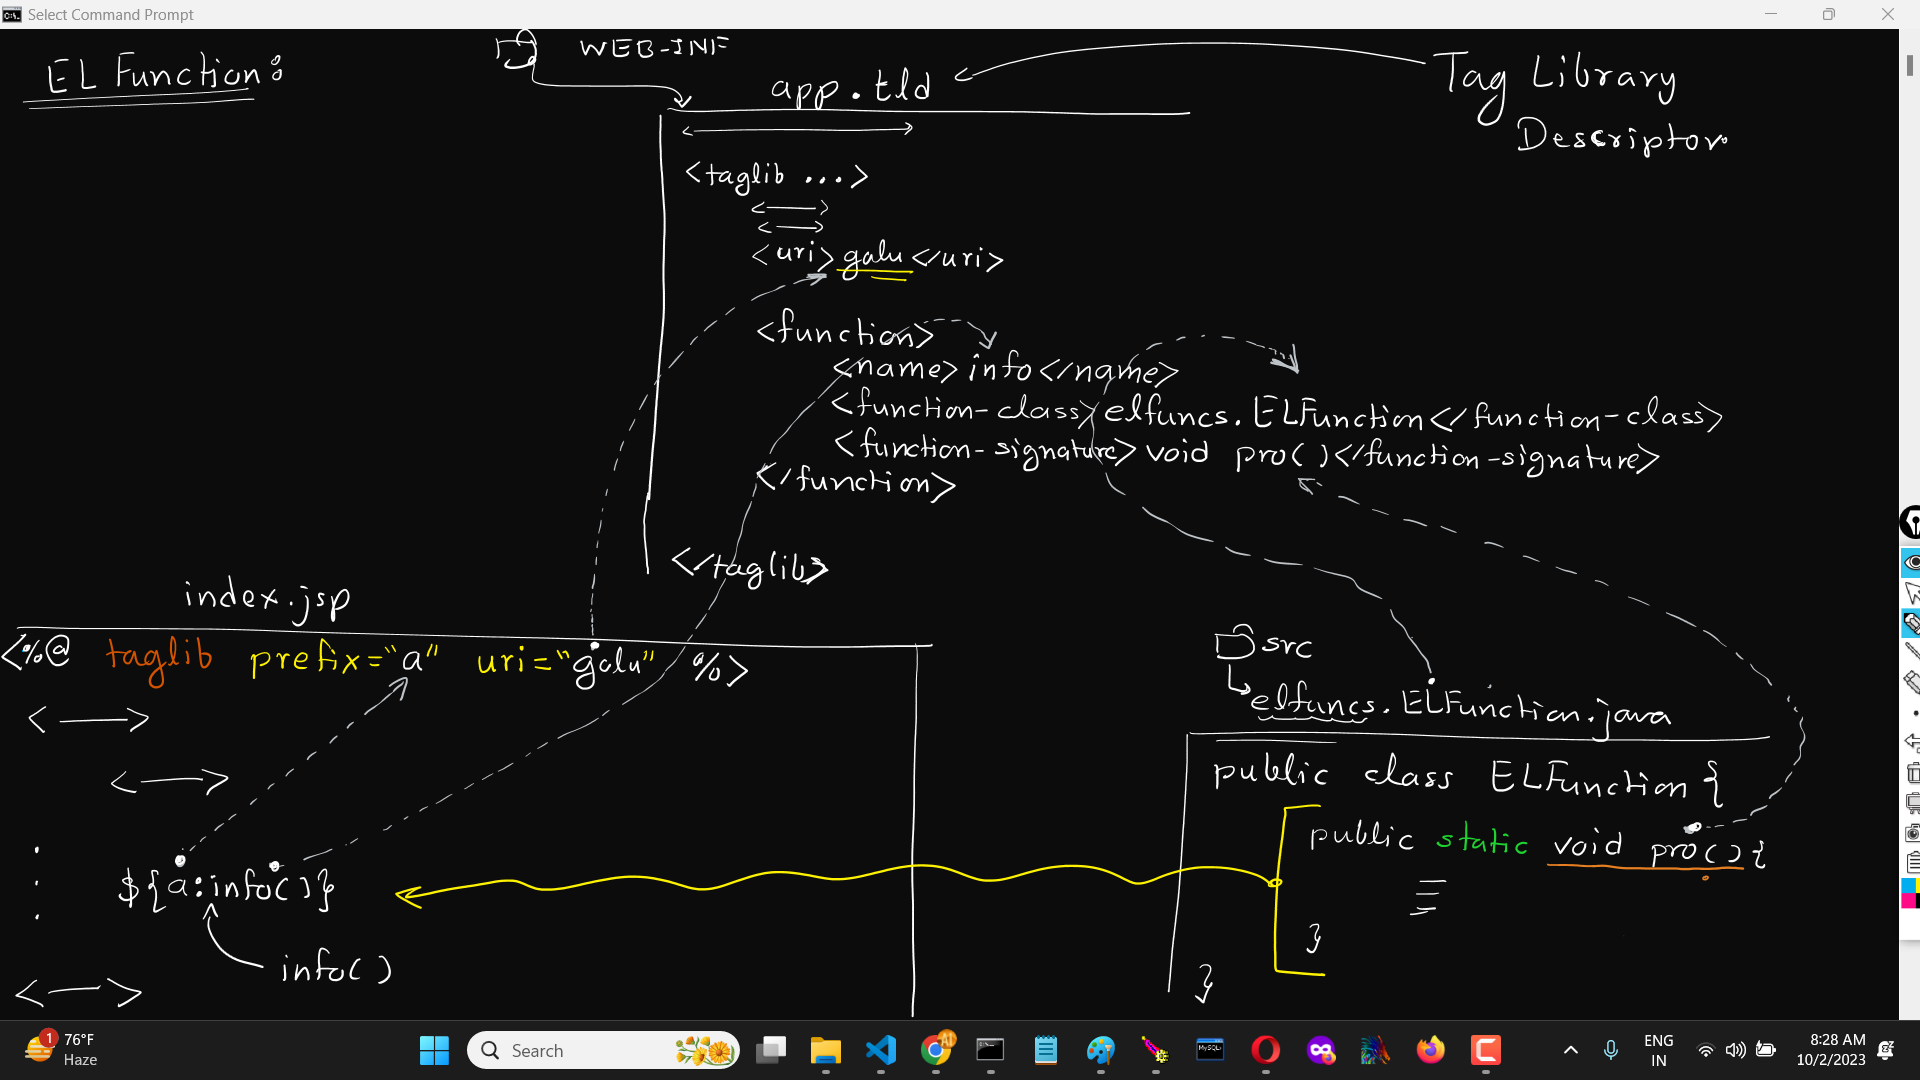 Select Command Prompt
EL Function:
WEB-INF
app.tld
Tag Library
Descriptor
<taglib ...>
<uri>galu</uri>
<function>
<name>info</name>
<function-class>elfuncs.ELFunction</function-class>
<function-signature>void pro()</function-signature>
</function>
</taglib>
index.jsp
<%@ taglib prefix="a" uri="galu" %>
${a:info()}
info()
src
elfuncs.ELFunction.java
public class ELFunction{
public static void pro(){
}
}
1
76°F
Haze
Search
AI
MySQL
ENG
IN
8:28 AM
10/2/2023